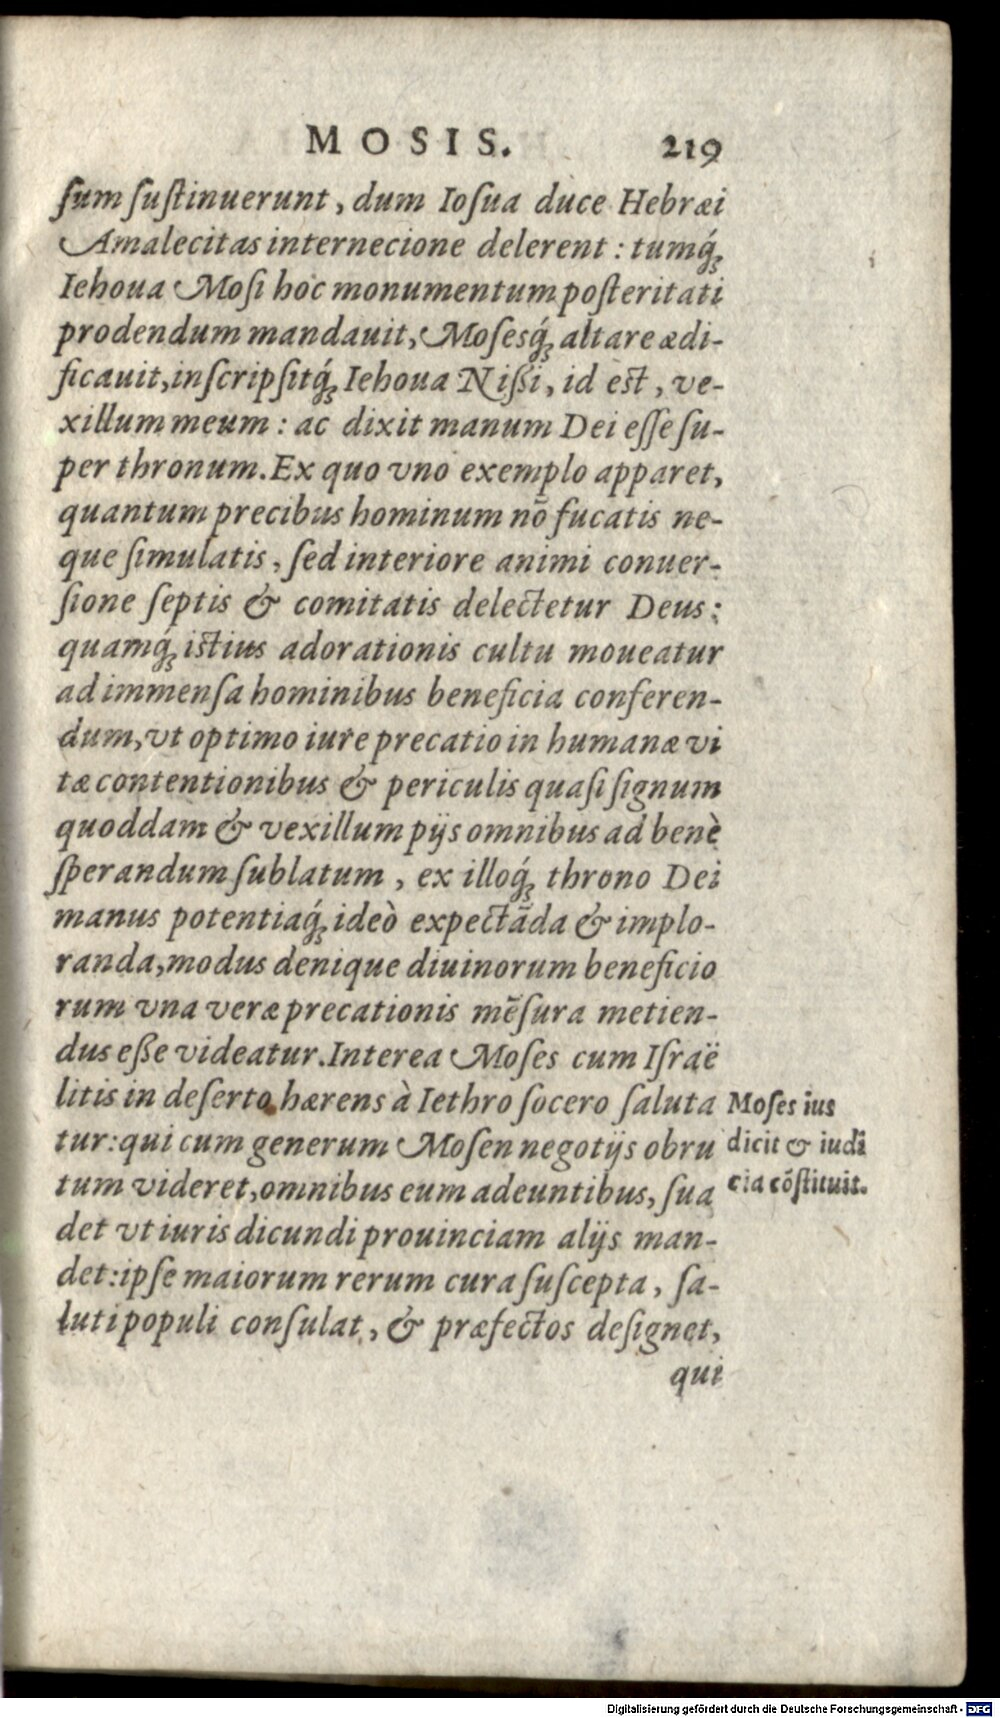 MOSIS. 219
ſum ſuſtinuerunt, dum Ioſua duce Hebræi
Amalecitas internecione delerent : tumq́ꝫ
Iehoua Moſi hoc monumentum poſteritati
prodendum mandauit, Moſesq́ꝫ altare ædi-
ficauit, inſcripſitq́ꝫ Iehoua Nißi, id eſt, ve-
xillum meum : ac dixit manum Dei eſſe ſu-
per thronum. Ex quo vno exemplo apparet,
quantum precibus hominum nō fucatis ne-
que ſimulatis, ſed interiore animi conuer-
ſione ſeptis & comitatis delectetur Deus:
quamq́ꝫ iſtius adorationis cultu moueatur
ad immenſa hominibus beneficia conferen-
dum, vt optimo iure precatio in humanæ vi
tæ contentionibus & periculis quaſi ſignum
quoddam & vexillum pijs omnibus ad benè
ſperandum ſublatum, ex illoq́ꝫ throno Dei
manus potentiaq́ꝫ ideò expectāda & implo-
randa, modus denique diuinorum beneficio
rum vna veræ precationis mēſura metien-
dus eße videatur. Interea Moſes cum Iſraë
litis in deſerto hærens à Iethro ſocero ſaluta
tur: qui cum generum Moſen negotijs obru
tum videret, omnibus eum adeuntibus, ſua
det vt iuris dicundi prouinciam alijs man-
det: ipſe maiorum rerum cura ſuſcepta, ſa-
luti populi conſulat, & præfectos deſignet,
qui
Moſes ius
dicit & iudi
cia cōſtituit.
Digitalisierung gefördert durch die Deutsche Forschungsgemeinschaft - DFG